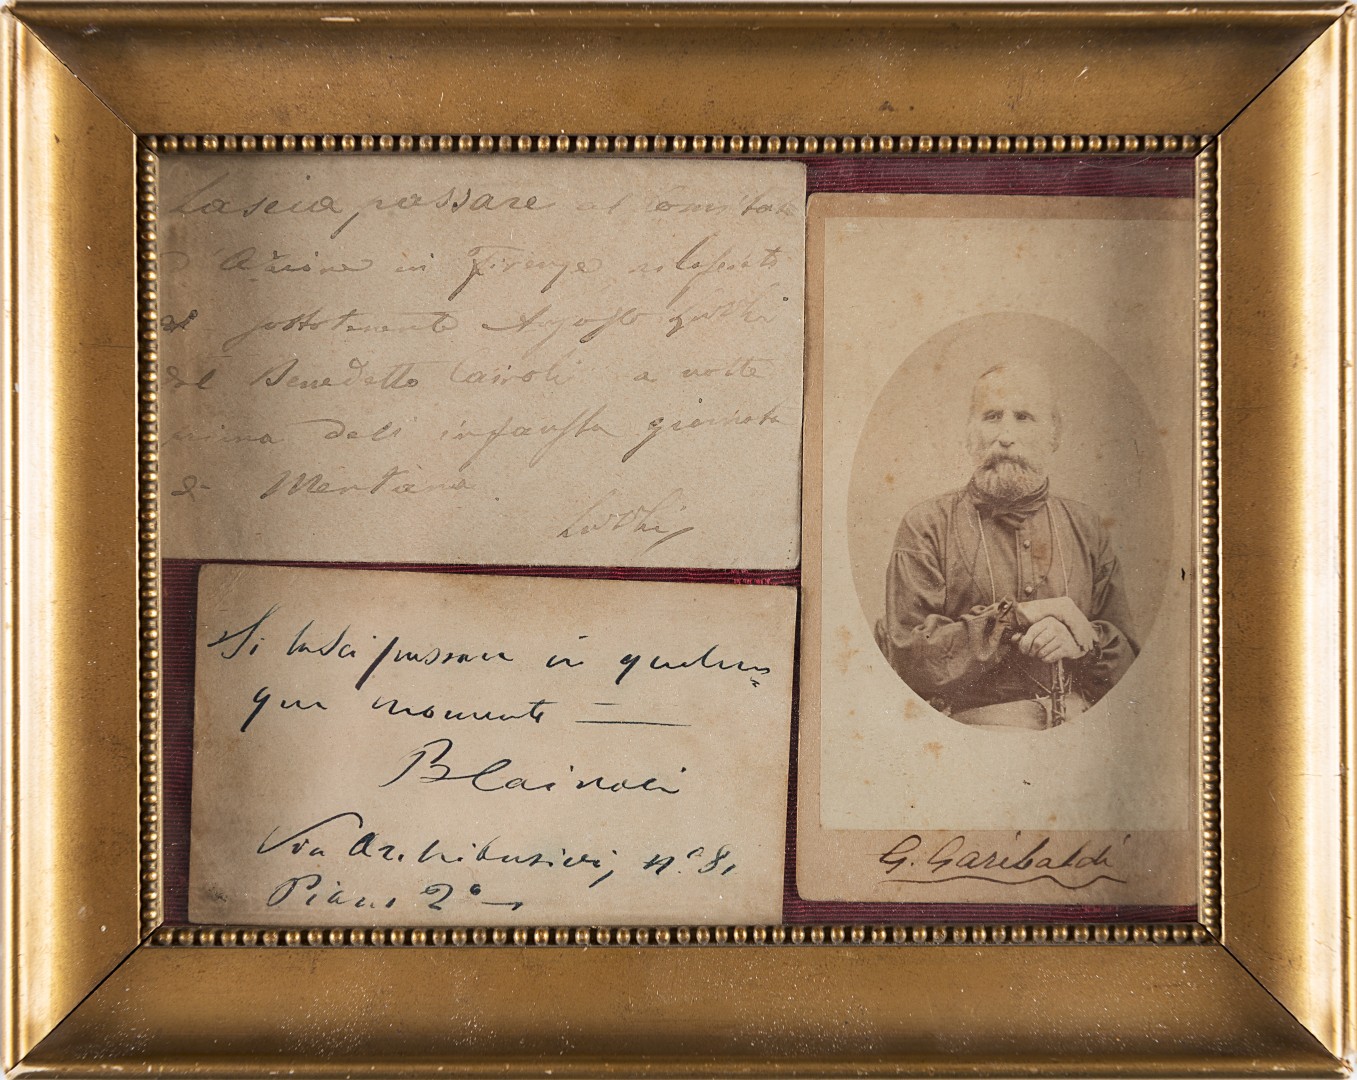 Lascia passare al Comitato
d'Azione in Firenze rilasciato
al sottotenente Augusto
dal Benedetto Cairoli a notte
prima dell'infausta giornata
di Mentana
Si lasci passare in qualun=
que momento —
BCairoli
Via Archibusieri, Nº 8,
Piano 2º
G. Garibaldi